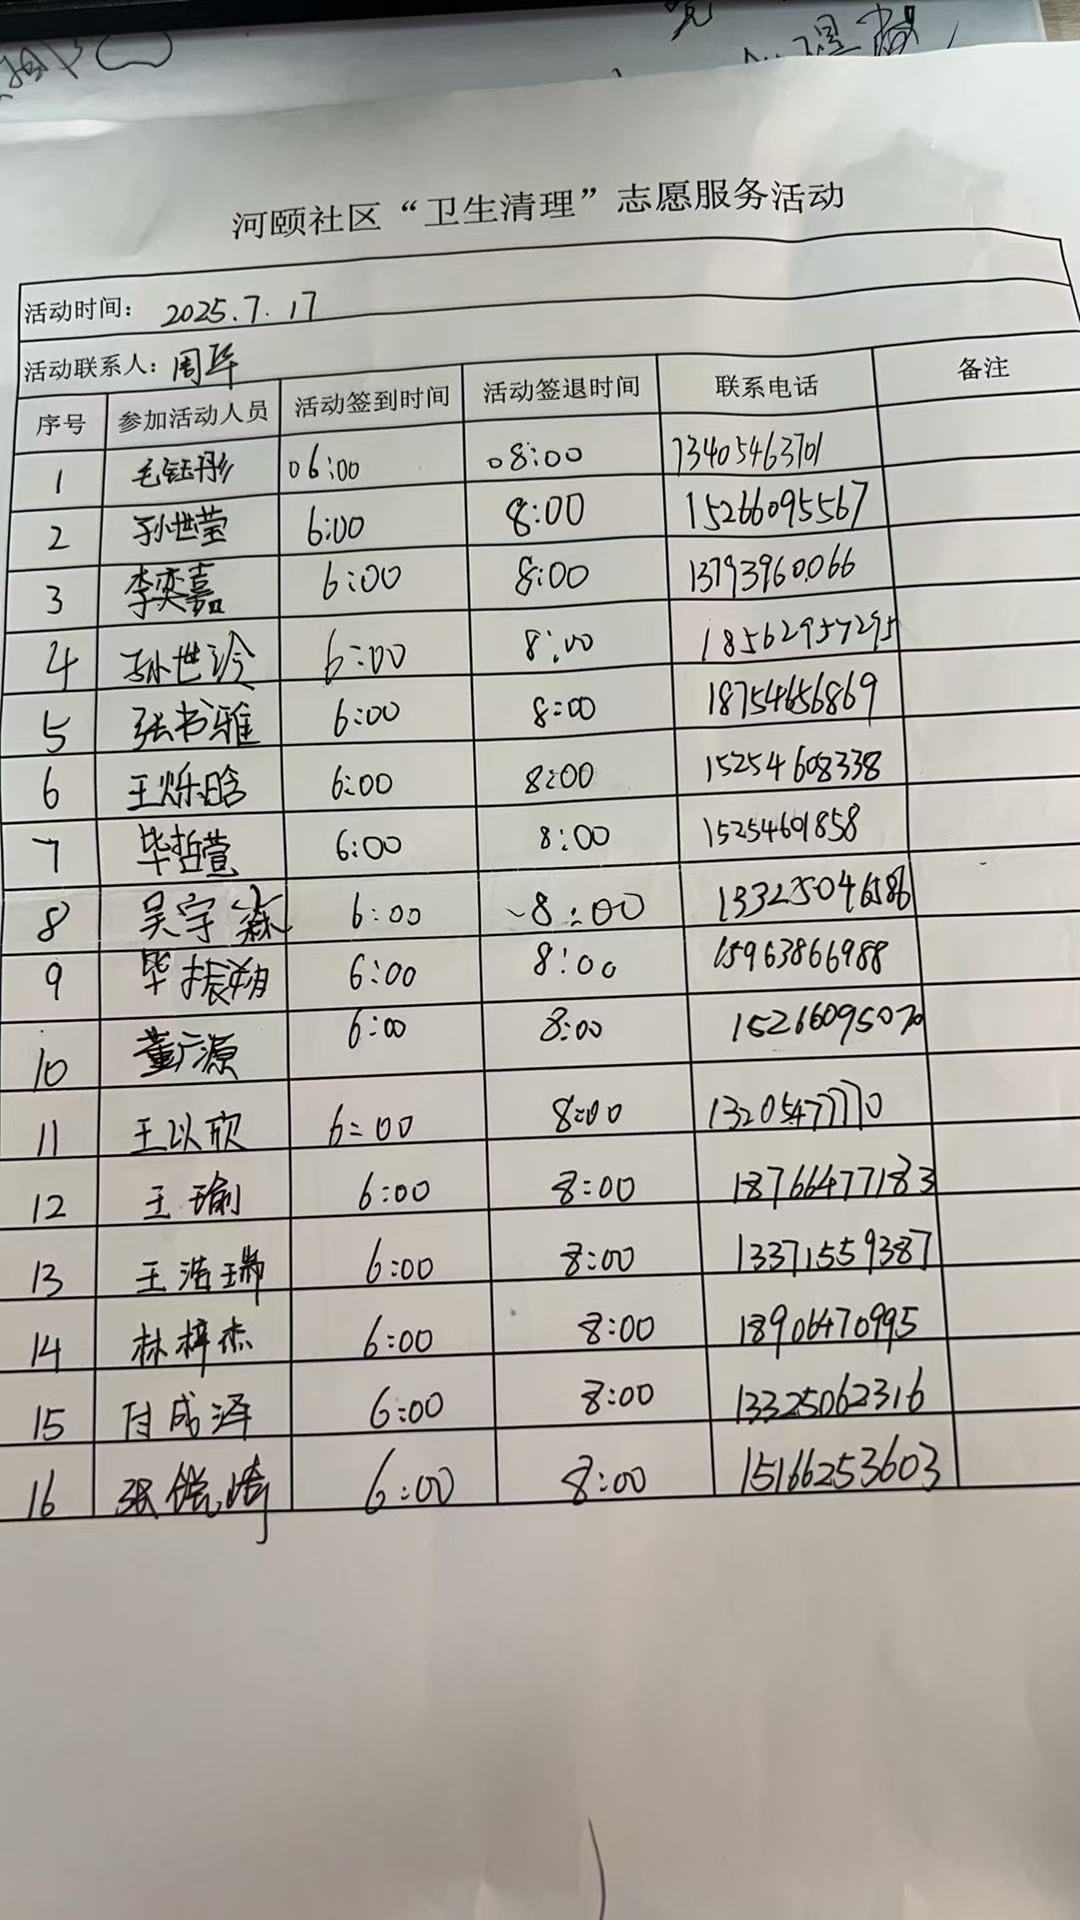 河颐社区“卫生清理”志愿服务活动
活动时间： 2025.7.17
活动联系人：周华
序号 参加活动人员 活动签到时间 活动签退时间 联系电话 备注
1 毛钰彤 06:00 08:00 13405463701
2 孙世莹 6:00 8:00 15266095567
3 李奕嘉 6:00 8:00 13793960066
4 孙世泠 6:00 8:00 18562957295
5 张书雅 6:00 8:00 18754656869
6 王烁晗 6:00 8:00 15254608338
7 毕哲萱 6:00 8:00 15254601858
8 吴宇霖 6:00 8:00 13325046586
9 毕振翔 6:00 8:00 15963866988
10 董广源 6:00 8:00 15266095070
11 王以欣 6:00 8:00 13205477770
12 王瑜 6:00 8:00 18766477183
13 王浩瑞 6:00 8:00 13371559387
14 林梓杰 6:00 8:00 18906470995
15 付成泽 6:00 8:00 13325062316
16 张锐琦 6:00 8:00 15166253603